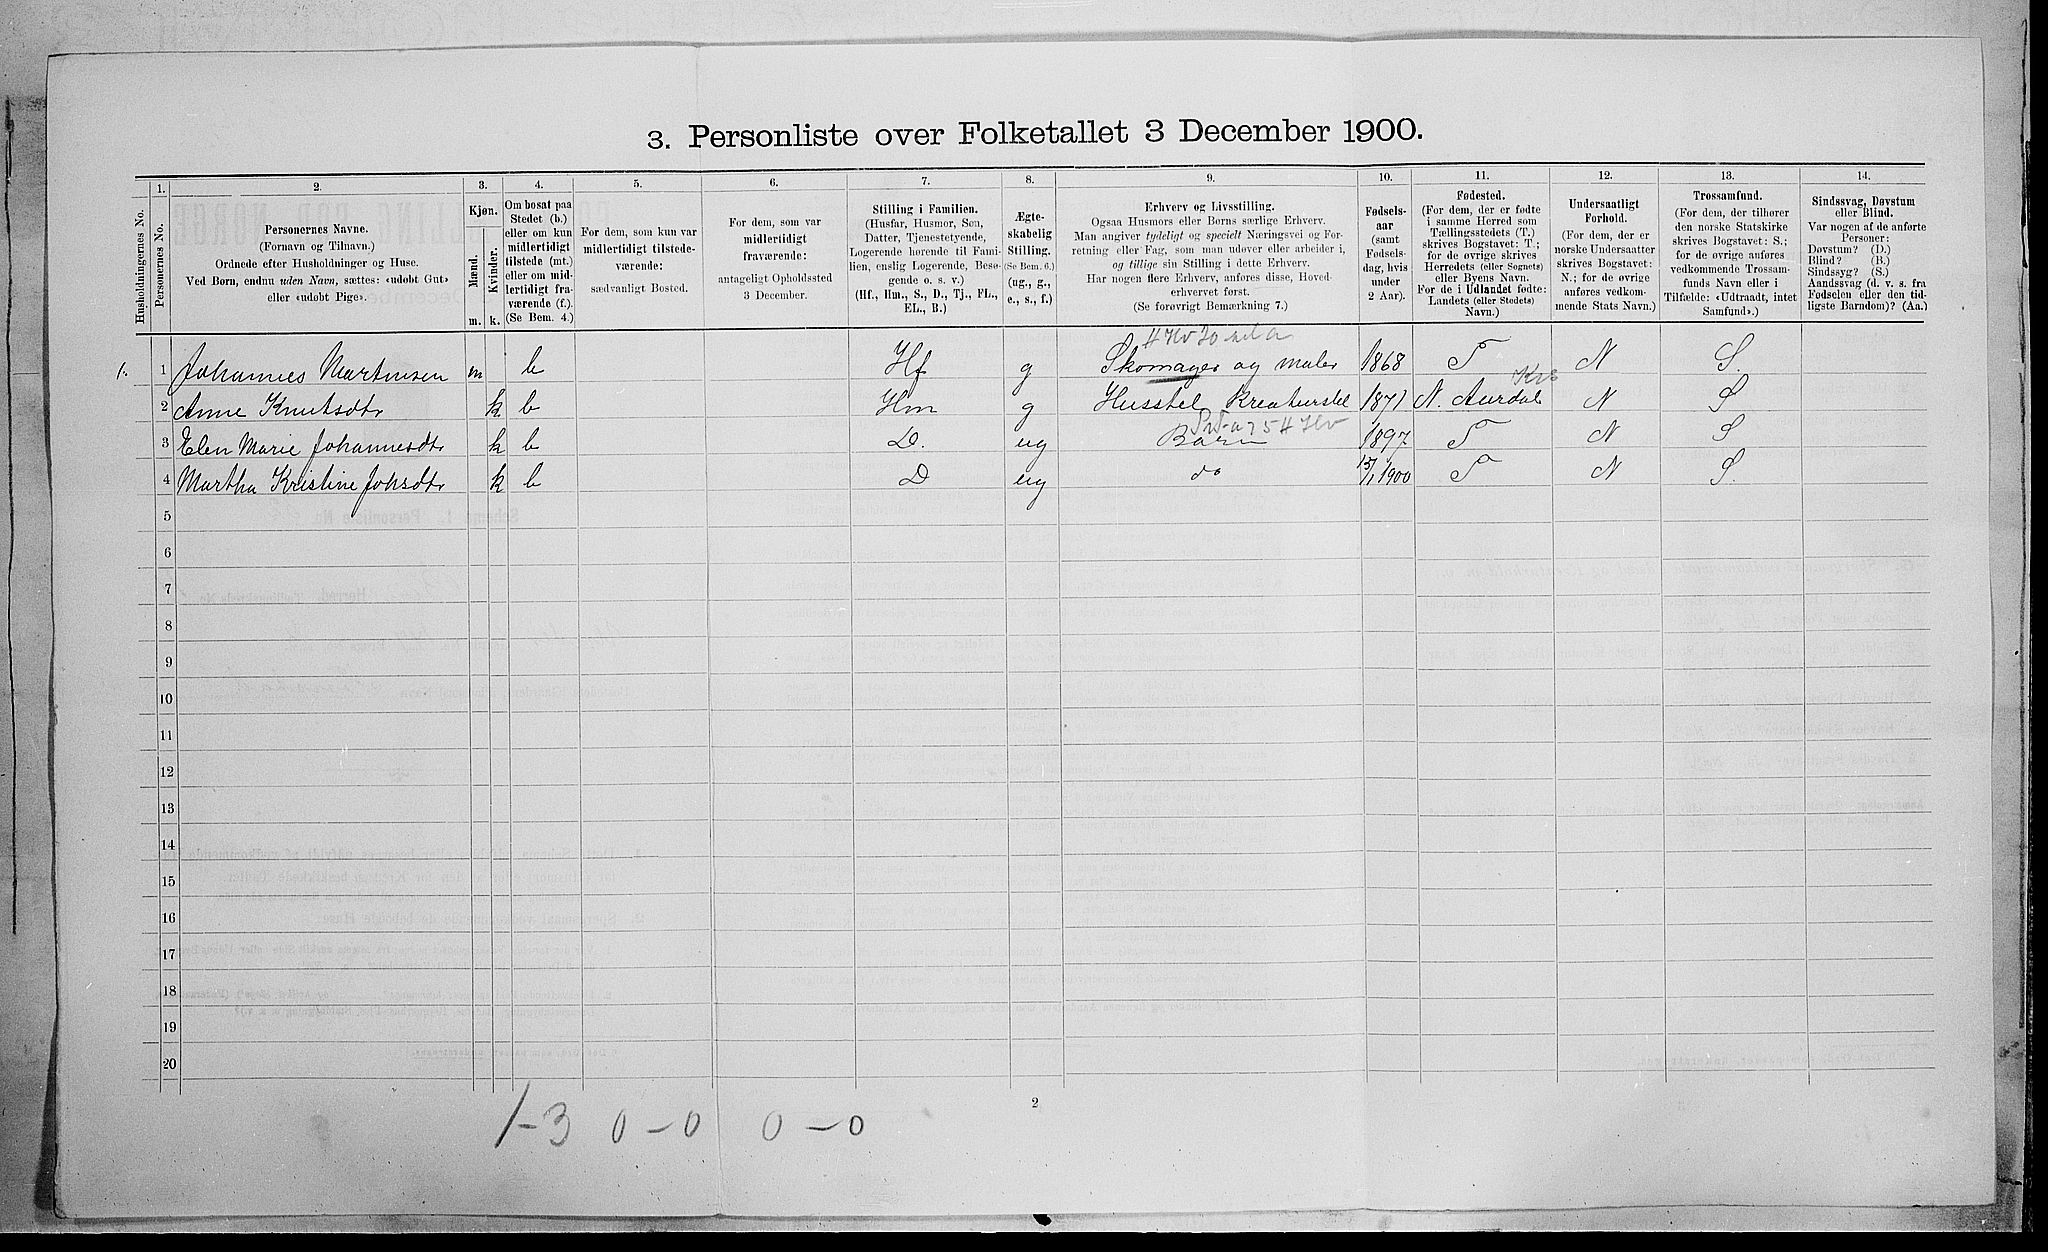 3. Personliste over Folketallet 3 December 1900.
Husholdningernes No.
1.
Personernes No.
2.
Personernes Navne.
(Fornavn og Tilnavn.)
Ordnede efter Husholdninger og Huse.
Ved Børn, endnu uden Navn, sættes: «udøbt Gut»
eller «udøbt Pige».
3.
Kjøn.
Mænd.
Kvinder.
m. k.
4.
Om bosat paa
Stedet (b.)
eller om kun
midlertidigt
tilstede (mt.)
eller om mid-
lertidigt fra-
værende (f.).
(Se Bem. 4.)
5.
For dem, som kun var
midlertidigt tilstede-
værende:
sædvanligt Bosted.
6.
For dem, som var
midlertidigt
fraværende:
antageligt Opholdssted
3 December.
7.
Stilling i Familien.
(Husfar, Husmor, Søn,
Datter, Tjenestetyende,
Logerende hørende til Fami-
lien, enslig Logerende, Besø-
gende o. s. v.)
(Hf., Hm., S., D., Tj., FL.,
EL., B.)
8.
Ægte-
skabelig
Stilling.
(Se Bem. 6.)
(ug., g.,
e., s., f.)
9.
Erhverv og Livsstilling.
Ogsaa Husmors eller Børns særlige Erhverv.
Man angiver tydeligt og specielt Næringsvei og For-
retning eller Fag, som man udøver eller arbeider i,
og tillige sin Stilling i dette Erhverv.
Har nogen flere Erhverv, anføres disse, Hoved-
erhvervet først.
(Se forøvrigt Bemærkning 7.)
10.
Fødsels-
aar
(samt
Fødsels-
dag, hvis
under
2 Aar).
11.
Fødested.
(For dem, der er fødte
i samme Herred som
Tællingsstedets (T.)
skrives Bogstavet: T.;
for de øvrige skrives
Herredets (eller Sognets)
eller Byens Navn.
For de i Udlandet fødte:
Landets (eller Stedets)
Navn.)
12.
Undersaatligt
Forhold.
(For dem, der er
norske Undersaatter
skrives Bogstavet:
N.; for de øvrige
anføres vedkom-
mende Stats Navn.)
13.
Trossamfund.
(For dem, der tilhører
den norske Statskirke
skrives Bogstavet: S.;
for de øvrige anføres
vedkommende Trossam-
funds Navn eller i
Tilfælde: «Udtraadt, intet
Samfund».)
14.
Sindssvag, Døvstum
eller Blind.
Var nogen af de anførte
Personer:
Døvstum? (D.)
Blind? (B.)
Sindssyg? (S.)
Aandssvag (d. v. s. fra
Fødselen eller den tid-
ligste Barndom)? (Aa.)
1. 1 Johannes Martinsen m b Hf g Skomager og maler 1868 T N S.
Krs
2 Anne Knutsdtr k b Hm g Husstel Kreaturstel 1871 N. Aurdal N S
3 Elen Marie Johannesdtr k b D. ug Barn 1897 T N S
4 Martha Kristine Johsdtr k b D ug do 15/1 1900 T N S.
5
6
7
8
9
10
11
12
13
14
15
16
17
18
19
20
2
1-3 0-0 0-0